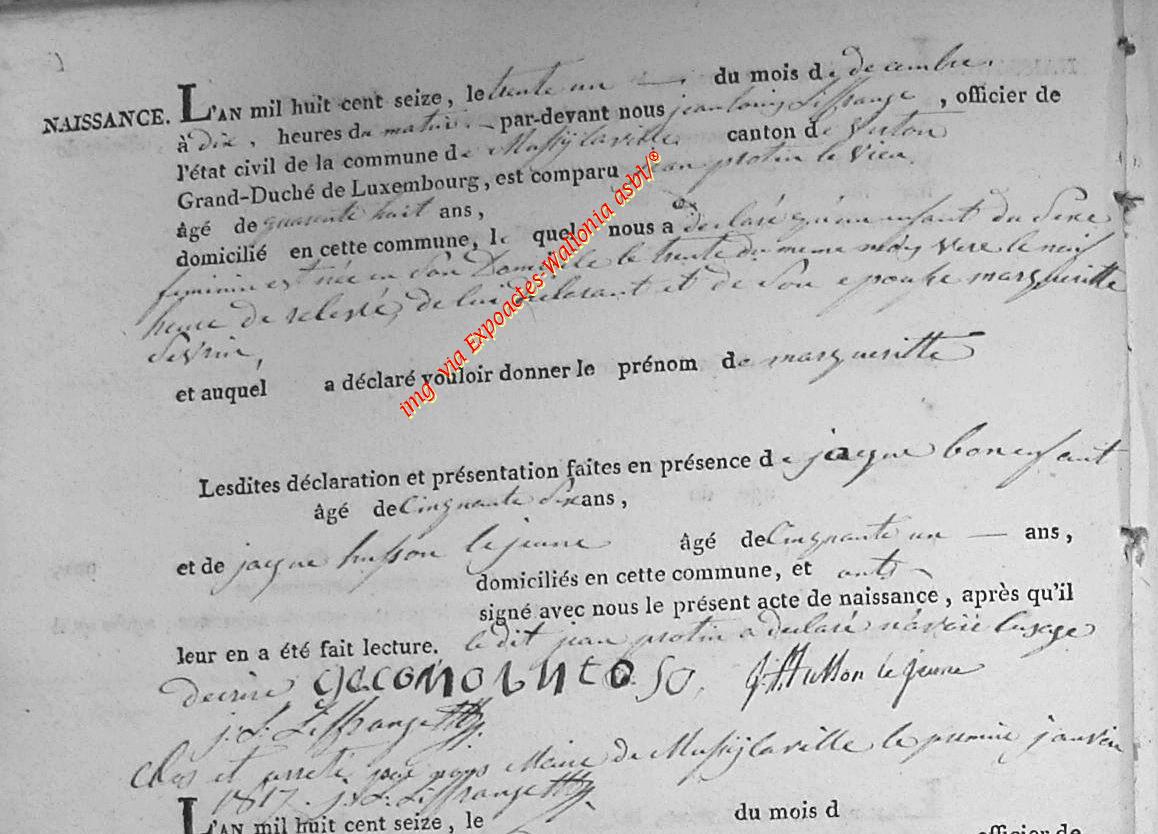 NAISSANCE. L'AN mil huit cent seize, le trente un — du mois de decembre.
à dix, heures du matin. — par-devant nous jean louis Liffrange, officier de
l'état civil de la commune de Mussÿ la ville canton de Virton
Grand-Duché de Luxembourg, est comparu jean protin le vieu
âgé de quarente huit ans,
domicilié en cette commune, le quel nous a declaré qu'un enfant du Sexe
feminin est née en Son Domicile le trente du meme mois vere le neuf
heure de relevé, de lui Declarant et de Son epouse margueritte
et auquel a déclaré vouloir donner le prénom de margueritte
Lesdites déclaration et présentation faites en présence de jacque bonenfant
âgé de Cinquante Six ans,
et de jacque husson le jeune âgé de Cinquante un — ans,
domiciliés en cette commune, et onts
signé avec nous le présent acte de naissance, après qu'il
leur en a été fait lecture. le dit jean protin a declaré n'avoir l'usage
decrire J. Husson le jeune
j. L. Liffrange
Clos et arreté par nous Maire de Mussÿ la ville le premier janvier
1817. j. L. Liffrange
L'AN mil huit cent seize, le du mois d
officier de
img via Expoactes-Wallonia asbl/®